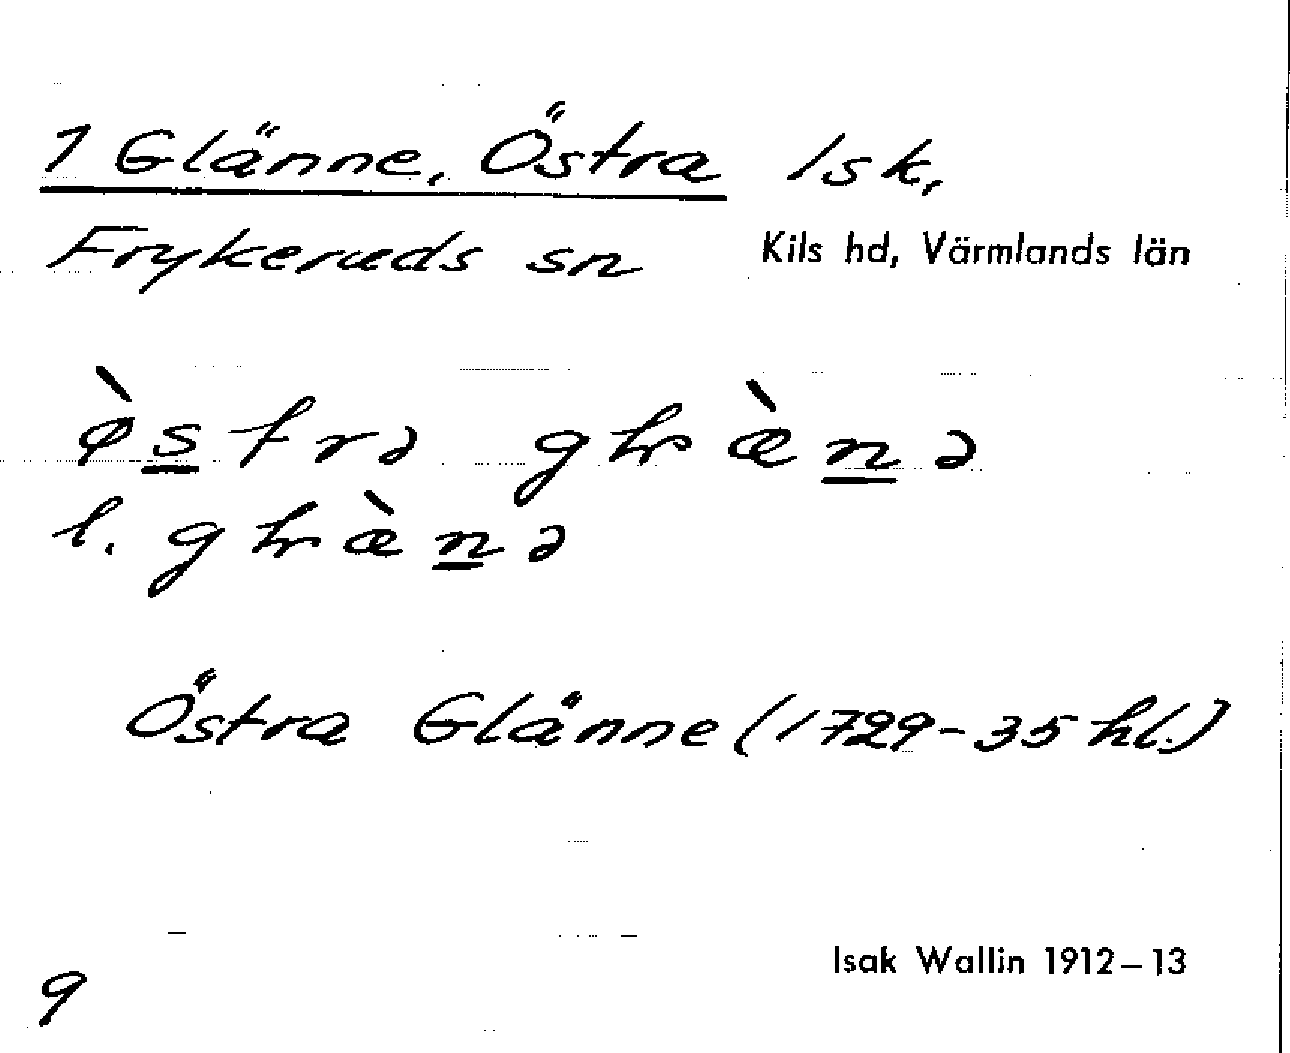 1 Glänne, Östra Isk.
Frykeruds sn Kils hd, Värmlands län
ø̀strə
l.
Östra Glänne (1729-35 hl.)
Isak Wallin 1912–13
9